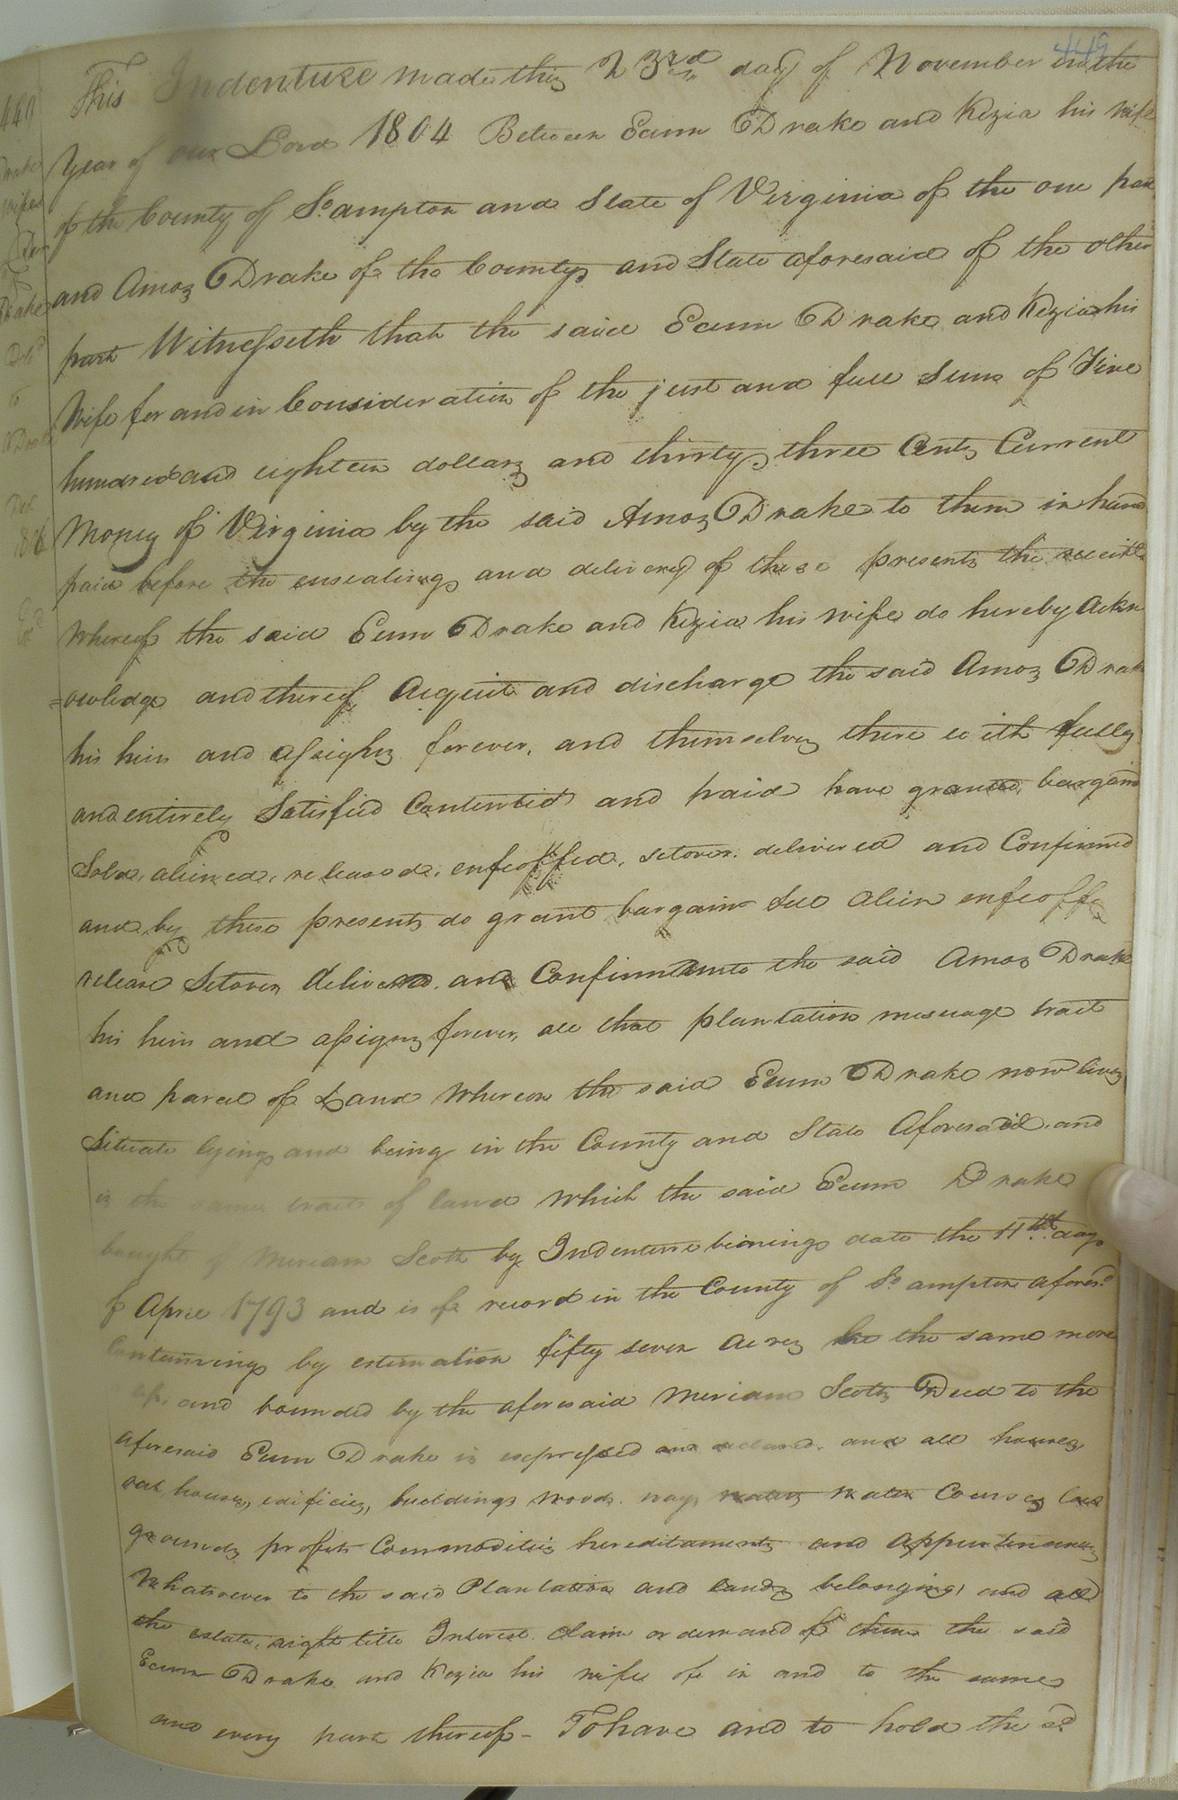 449
This Indenture made this 23rd day of November in the
year of our Lord 1804 Between Eaum Drake and Kezia his wife
of the County of So.ampton and State of Virginia of the one part
and Amos Drake of the County and State aforesaid of the other
part Witnesseth that the said Eaum Drake and Kezia his
Wife for and in Consideration of the just and full sum of Five
hundred and eighteen dollars and thirty three Cents Current
Money of Virginia by the said Amos Drake to them in hand
paid before the ensealing and delivery of these presents the receipt
whereof the said Eaum Drake and Kezia his wife do hereby Ackn
=owledge and thereof Acquit and discharge the said Amos Drake
his heirs and assighs forever, and themselves there with fully
and entirely Satisfied Contented and paid have granted, bargain
Sold, aliened, released, enfeoffed, setover, delivered and Confirmed
and by these presents do grant bargain sell alien enfeoffe
release Setover deliver and Confirm unto the said Amos Drake
his heirs and assigns forever, all that plantation messuage tract
and parcel of Land Whereon the said Eaum Drake now lives
Situate lying and being in the County and State Aforesaid and
is the same tract of land which the said Eaum Drake
bought of Meriam Scott by Indenture bearing date the 11th day
of April 1793 and is of record in the County of So.ampton afores.d
Containing by estimation fifty seven Acres be the same more
and bounded by the aforesaid Meriam Scotts Deed to the
aforesaid Eaum Drake is expressed and declared, and all houses
out houses, edificies, buildings woods ways waters water Courses
grounds profits Commodities hereditaments and Appurtenances
Whatsoever to the said Plantation and lands belonging, and all
the estate, right title Interest Claim or demand of them the said
Eaum Drake and Kezia his wife of in and to the same
and every part thereof - To have and to hold the sd